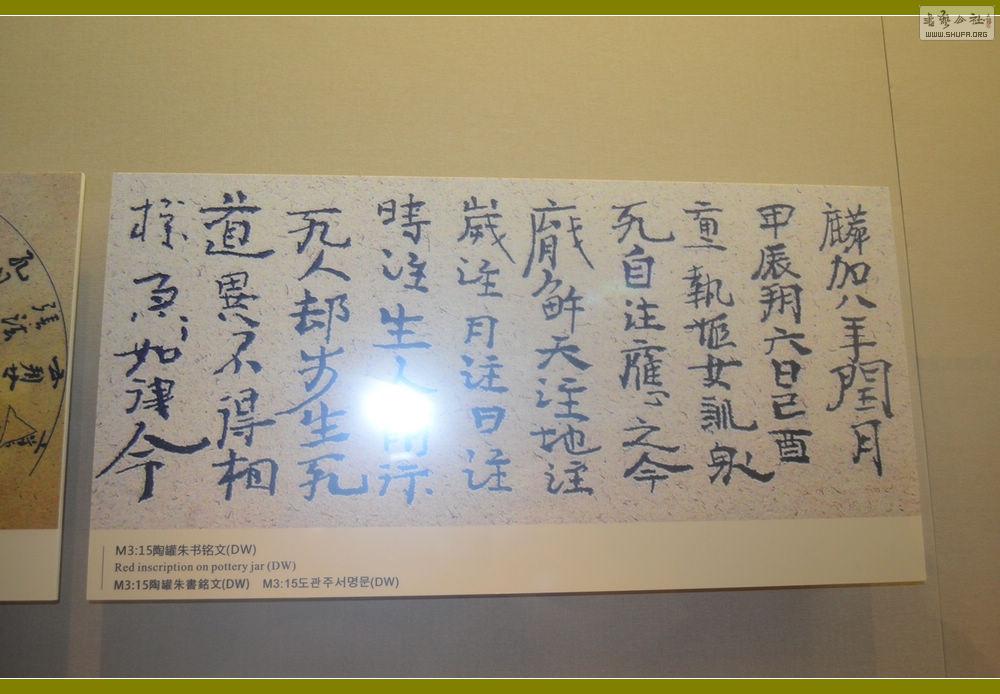 麟加八年閏月
甲辰朔六日己酉
直執姬女訓身
死自注應之今
厭解天注地注
歲注月注日注
時注生人前行
死人却步生死
道異不得相
撞急々如律令
M3:15陶罐朱书铭文(DW)
Red inscription on pottery jar (DW)
M3:15陶罐朱書銘文(DW) M3:15도관주서명문(DW)
书艺公社
WWW.SHUFA.ORG